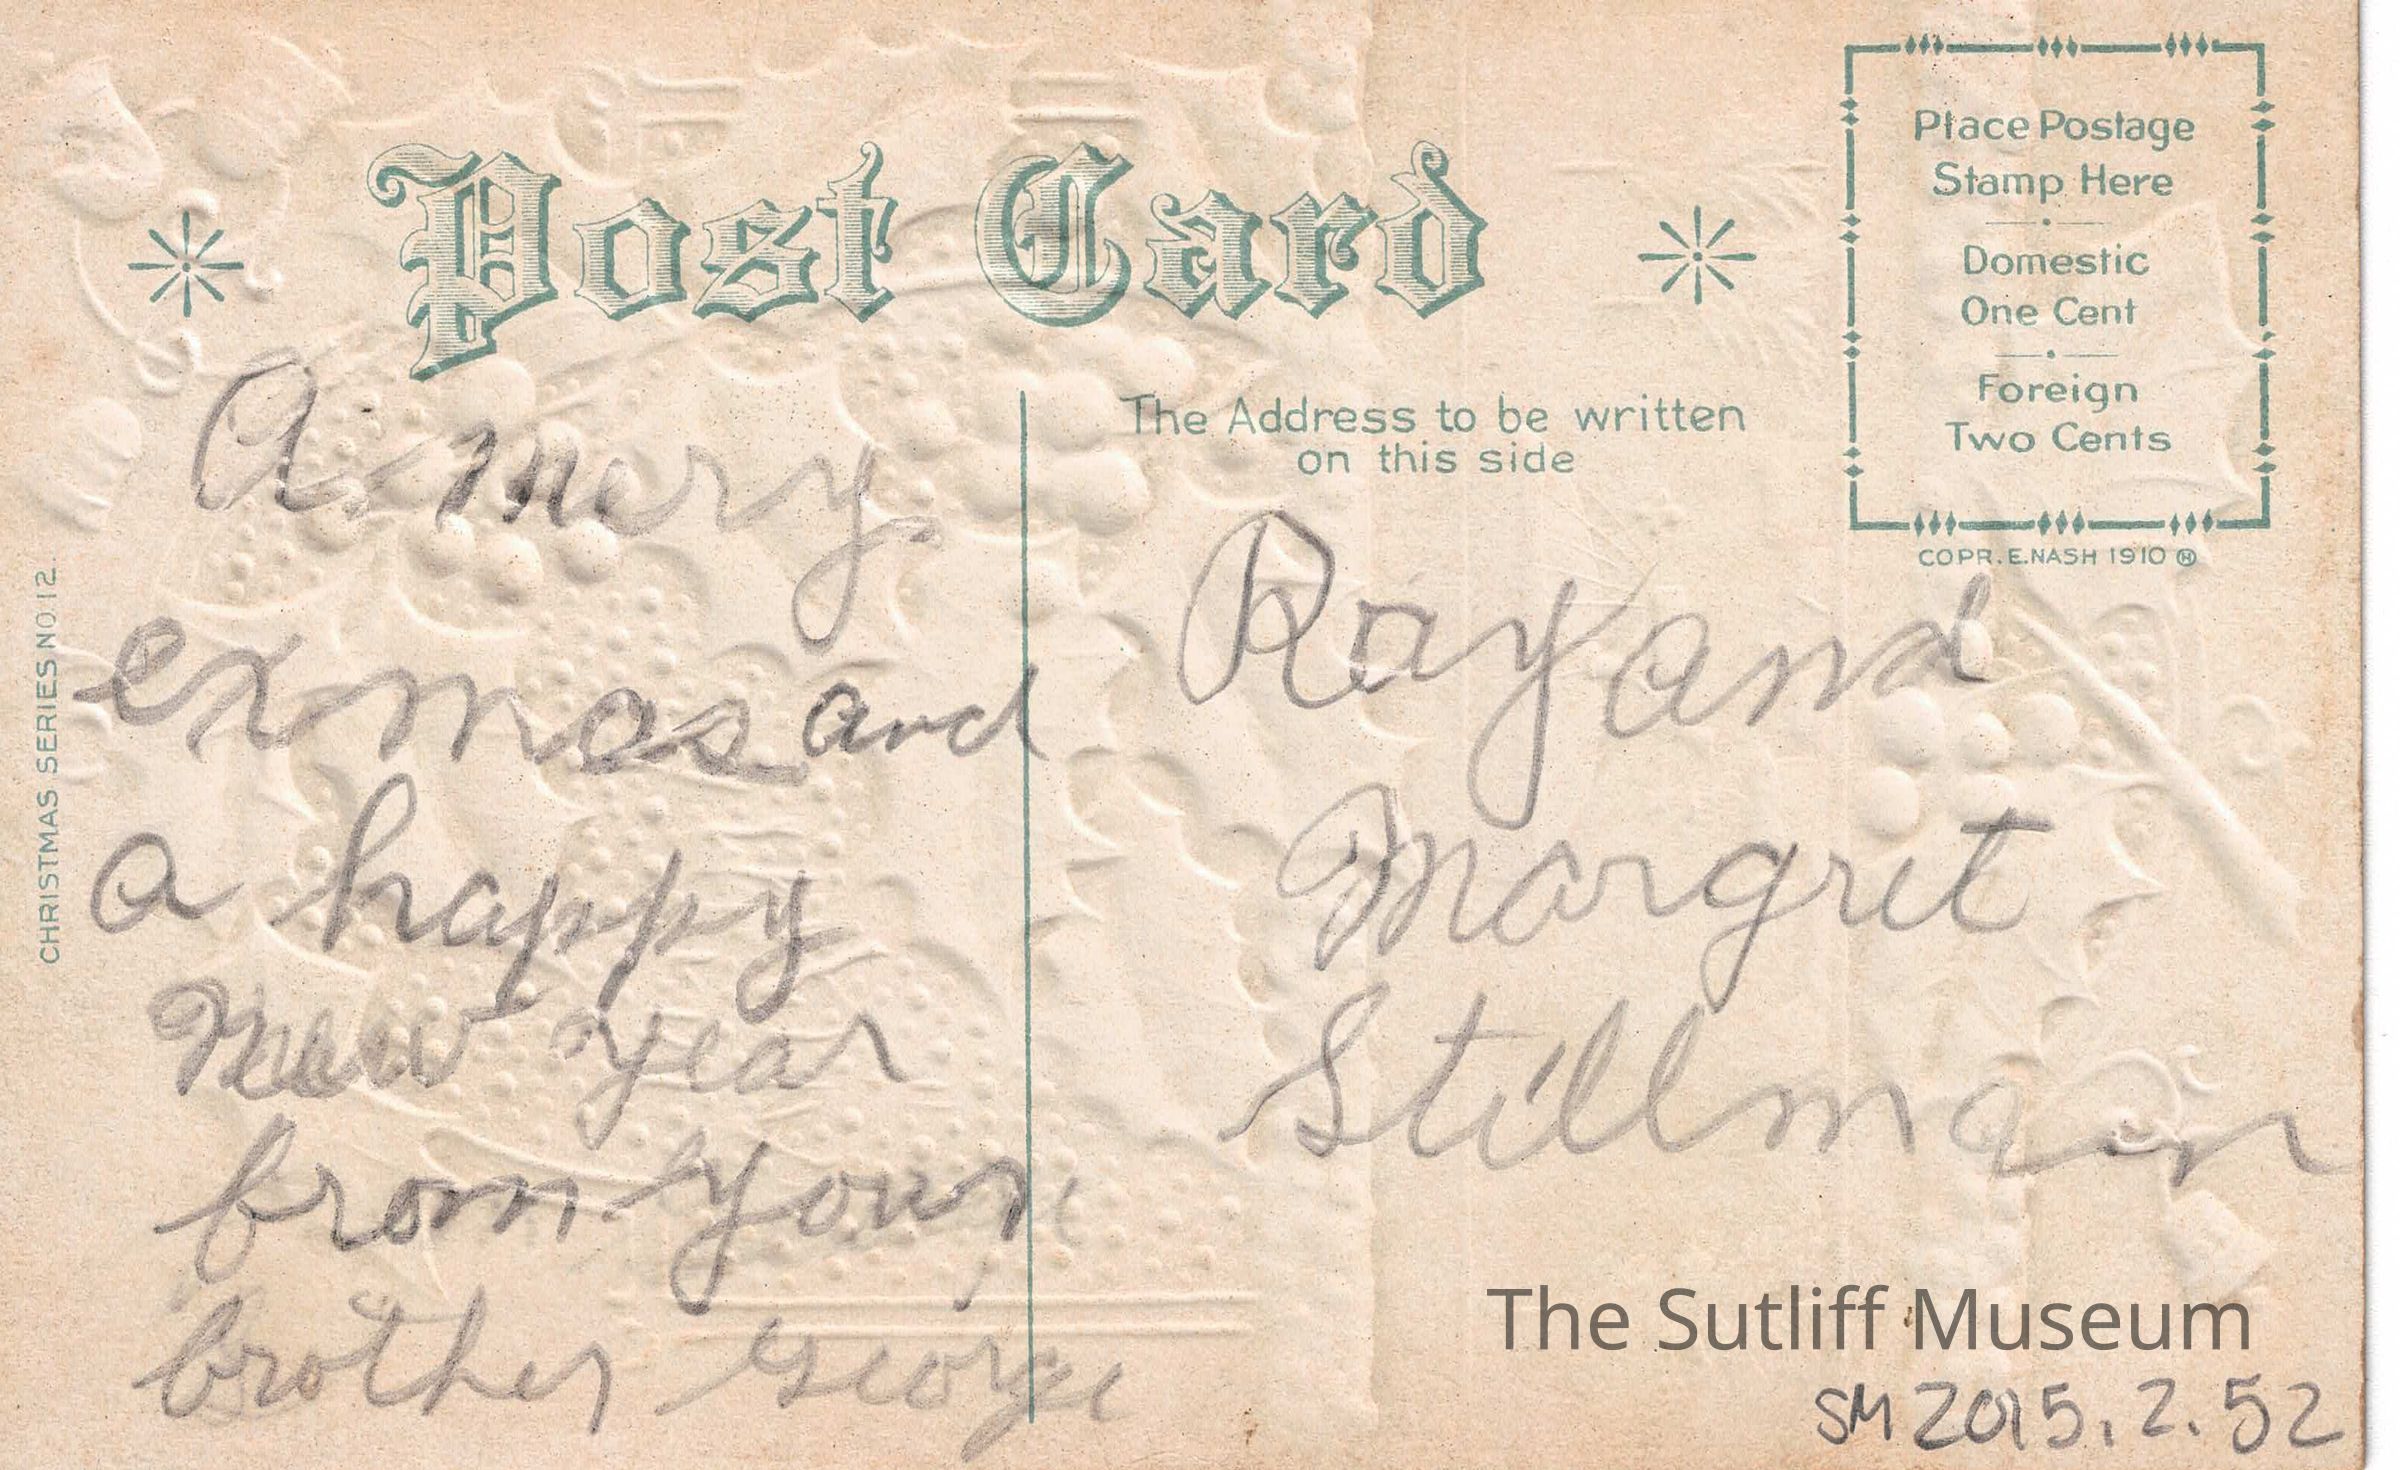 Post Card
Place Postage
Stamp Here
Domestic
One Cent
Foreign
Two Cents
COPR. E. NASH 1910 Ⓝ
The Address to be written
on this side
CHRISTMAS SERIES NO. 12.
A mery
exmas and
a happy
New year
from your
brother George
Ray and
Margret
Stillman
The Sutliff Museum
SM 2015.2.52